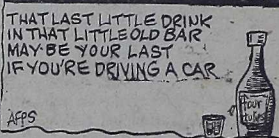 THAT LAST LITTLE DRINK
IN THAT LITTLE OLD BAR
MAY BE YOUR LAST
IF YOU'RE DRIVING A CAR
AFPS
Four